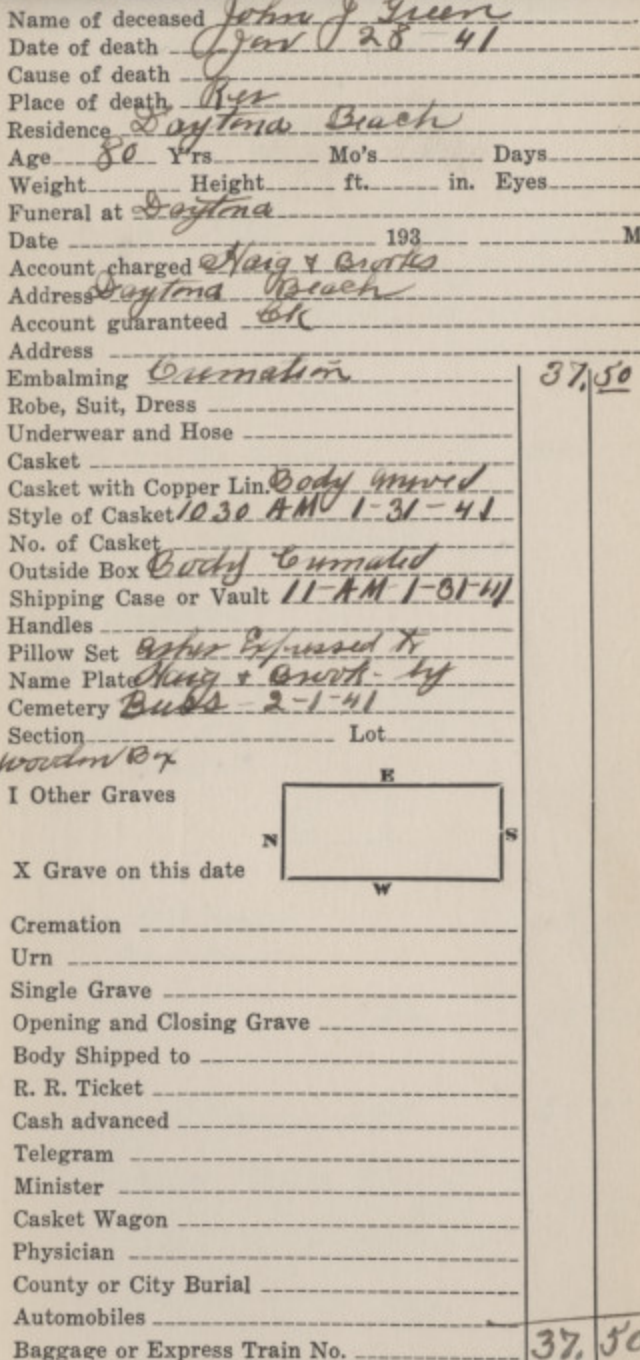 Name of deceased John J Green
Date of death Jan 28 - 41
Cause of death
Place of death Res
Residence Daytona Beach
Age 80 Y'rs Mo's Days
Weight Height ft. in. Eyes
Funeral at Daytona
Date 193 M
Account charged Haig & Brooks
Address Daytona Beach
Account guaranteed Ck
Address
Embalming Cremation 37.50
Robe, Suit, Dress
Underwear and Hose
Casket
Casket with Copper Lin. Body arrived
Style of Casket 10 30 AM 1-31-41
No. of Casket
Outside Box Body Cremated
Shipping Case or Vault 11-AM 1-31-41
Handles
Pillow Set Ashes Expressed to
Name Plate Haig & Brook - by
Cemetery Buss 2-1-41
Section Lot
wooden Box
E
I Other Graves
N S
X Grave on this date
W
Cremation
Urn
Single Grave
Opening and Closing Grave
Body Shipped to
R. R. Ticket
Cash advanced
Telegram
Minister
Casket Wagon
Physician
County or City Burial
Automobiles
Baggage or Express Train No. 37.50